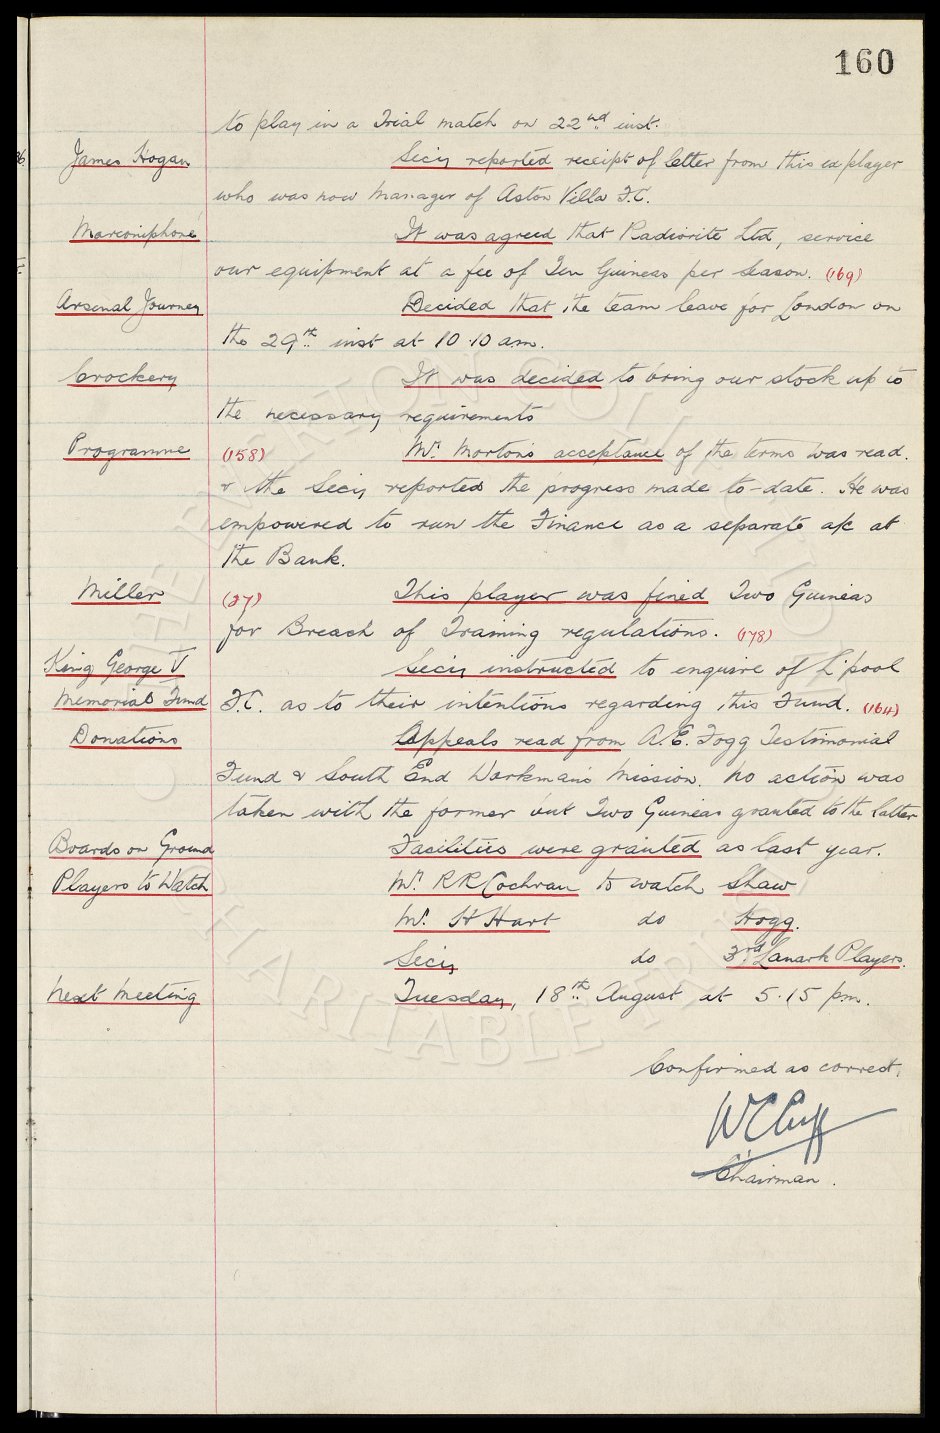 160
to play in a Trial match on 22nd inst.
James Hogan Secy reported receipt of letter from this ex player
who was now Manager of Aston Villa F.C.
Marconiphone It was agreed that Radiorite Ltd, service
our equipment at a fee of Ten Guineas per season. (169)
Arsenal Journey Decided that the team leave for London on
the 29th inst at 10.10 am.
Crockery It was decided to bring our stock up to
the necessary requirements
Programme (158) Mr. Morton's acceptance of the terms was read.
& the Secy reported the progress made to-date. He was
empowered to run the Finance as a separate a/c at
the Bank.
Miller (27) This player was fined Two Guineas
for Breach of Training regulations. (178)
King George V Secy instructed to enquire of L'pool
Memorial Fund F.C. as to their intentions regarding this Fund. (164)
Donations Appeals read from A.E. Fogg Testimonial
Fund & South End Workman's Mission. No action was
taken with the former but Two Guineas granted to the latter
Boards on Ground Facilities were granted as last year.
Players to Watch Mr. R R Cochran to watch Shaw
Mr. H Hart do Hogg.
Secy do 3rd Lanark Players.
Next Meeting Tuesday, 18th August at 5.15 pm.
Confirmed as correct,
W C Cuff
Chairman.
THE EVERTON COLLECTION
CHARITABLE TRUST